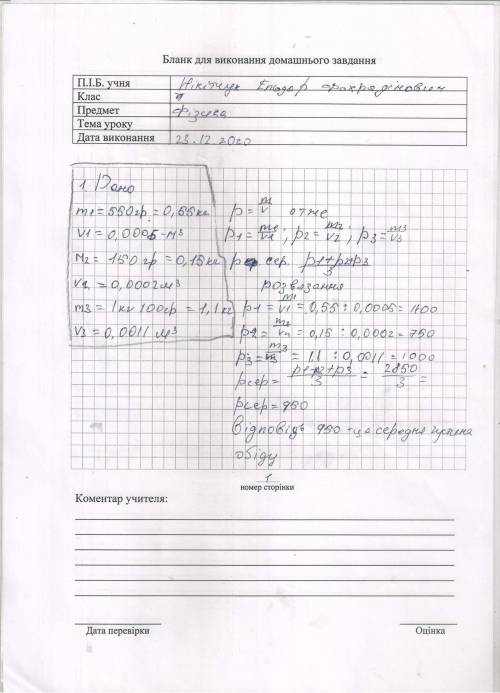 Бланк для виконання домашнього завдання
П.І.Б. учня Нікітчук
Клас
Предмет Фізика
Тема уроку
Дата виконання 23.12.2020
1. Дано
m1 = 550гр = 0,55кг
V1 = 0,0005 м³
m2 = 150гр = 0,15кг
V2 = 0,0002м³
m3 = 1кг 100гр = 1,1кг
V3 = 0,0011 м³
p = m/V отже
p1 = m1/V1; p2 = m2/V2; p3 = m3/V3
p сер. p1+p2+p3/3
розвязання
p1 = m1/V1 = 0,55 : 0,0005 = 1100
p2 = m2/V2 = 0,15 : 0,0002 = 750
p3 = m3/V3 = 1,1 : 0,0011 = 1000
pсер = p1+p2+p3/3 = 2850/3 =
pсер = 950
Відповідь 950 - це середня щільна
обіду
1
номер сторінки
Коментар учителя:
Дата перевірки Оцінка